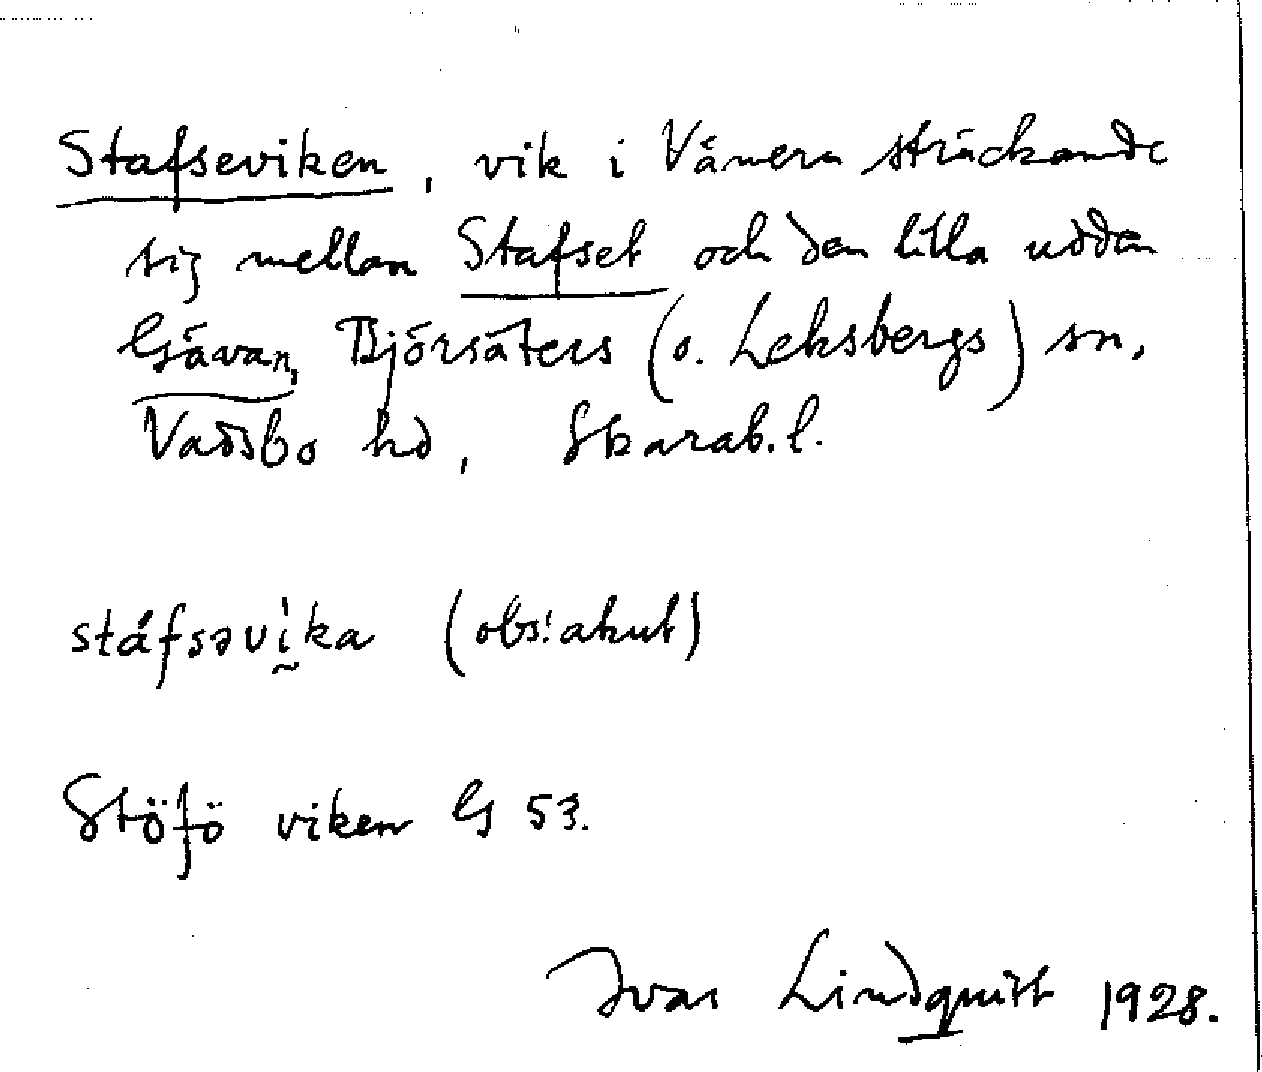 Stafseviken, vik i Vänern sträckande
sig mellan Stafset och den lilla udden
Gävan, Björsäters (o. Leksbergs) sn,
Vadsbo hd, Skarab.l.
stáfsəvìka (obs! akut)
Stöfö viken G 53.
Ivar Lindquist 1928.